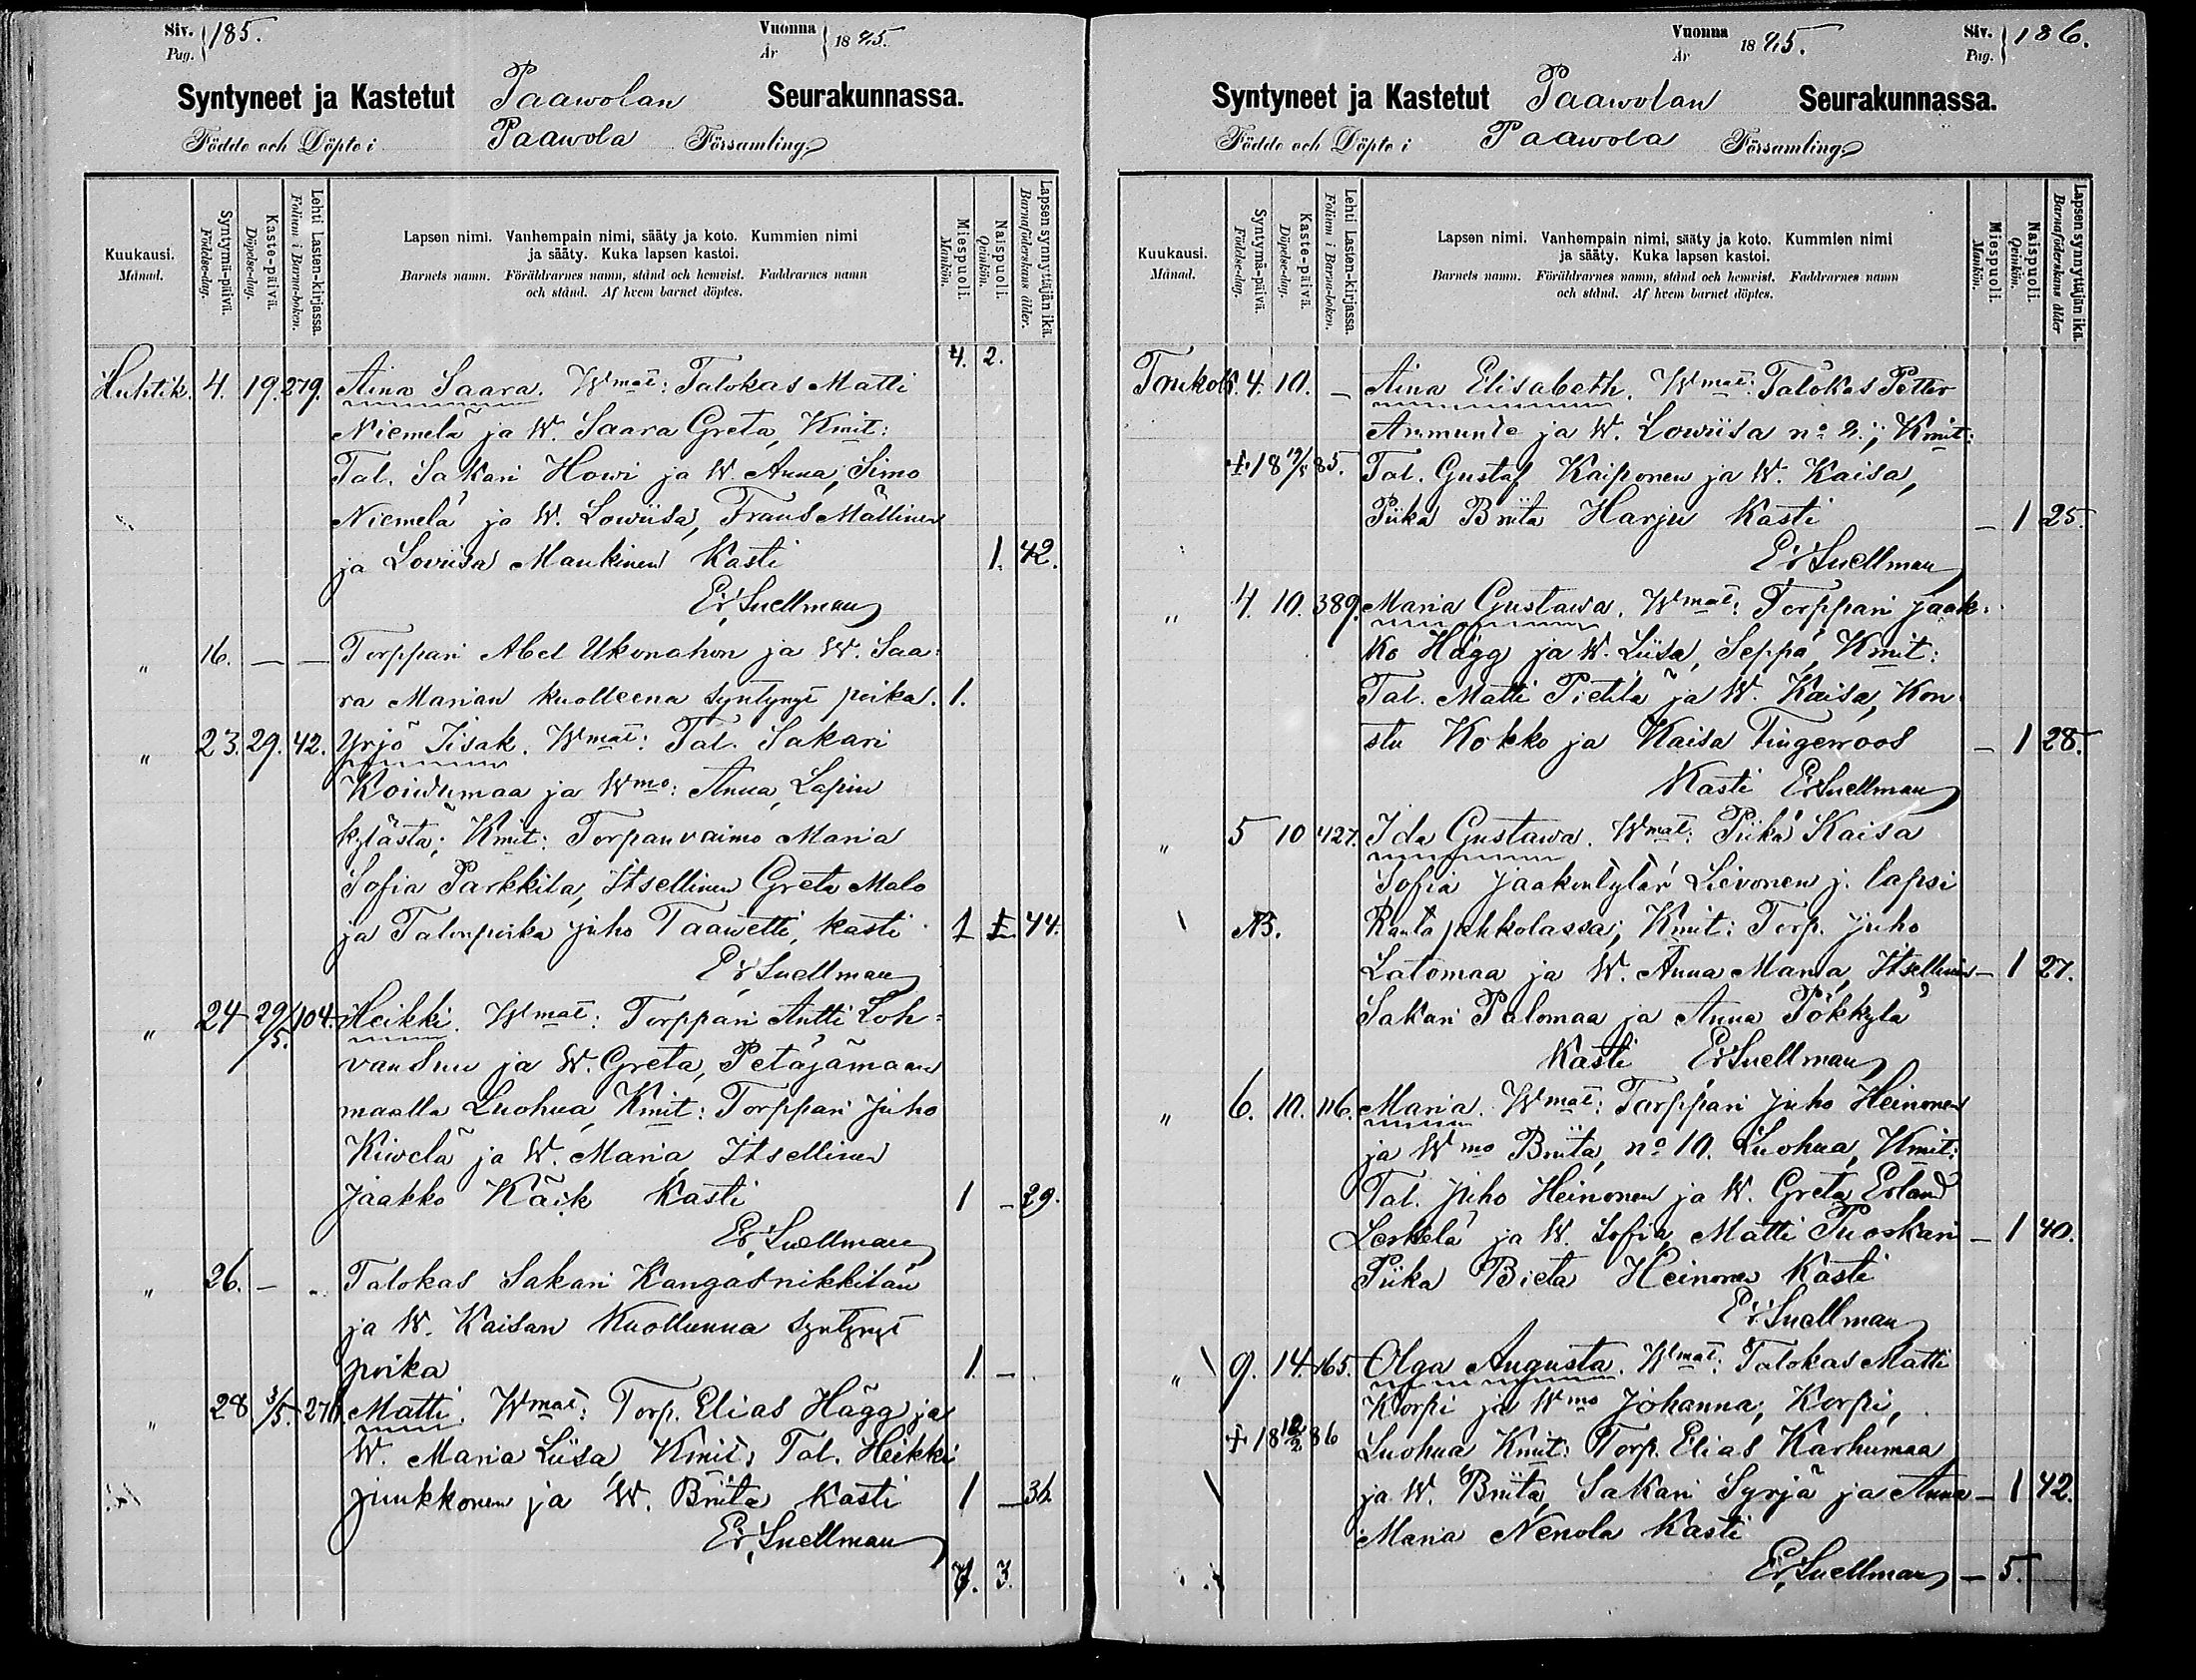 Siv. Pag. 185.
Vuonna År 1885.
Syntyneet ja Kastetut Paawolan Seurakunnassa.
Födde och Döpte i Paawola Församling
Kuukausi. Månad.
Syntymä-päivä. Födelse-dag.
Kaste-päivä. Döpelse-dag.
Lehti Lasten-kirjassa. Folium i Barna-boken.
Lapsen nimi. Vanhempain nimi, sääty ja koto. Kummien nimi
ja sääty. Kuka lapsen kastoi.
Barnets namn. Föräldrarnes namn, stånd och hemvist. Faddrarnes namn
och stånd. Af hvem barnet döptes.
Miespuoli. Mankön.
Naispuoli. Qvinkön.
Lapsen synnyttäjän ikä. Barnaföderskans ålder.
4. 2.
Huhtik. 4. 19. 279. Aina Saara. Wmat: Talokas Matti
Niemelä ja W. Saara Greta, Kmit:
Tal. Sakari Howi ja W. Anna, Simo
Niemelä ja W. Lowiisa, Frans Mällinen
ja Loviisa Maukinen Kasti 1. 42.
Er. Snellman
" 16. — — Torppari Abel Ukonahon ja W. Saa=
ra Marian kuolleena syntynyt poika. 1.
" 23. 29. 42. Yrjö Iisak. Wmat: Tal. Sakari
Koidumaa ja Wmo: Anna, Lapin
kylästä; Kmit: Torpanvaimo Maria
Sofia Parkkila, Itsellinen Greta Malo
ja Talonpoika Juho Taawetti, kasti 1 1 44.
Er. Snellman
" 24 29/5. 104. Heikki. Wmat: Torppari Antti Loh=
van Suu ja W. Greta, Petäjämaan
maalla Luohua, Kmit: Torppari Juho
Kiwelä ja W. Maria, Itsellinen
Jaakko Käik Kasti 1 — 29.
Er. Snellman
" 26. — - Talokas Sakari Kangasnikkilän
ja W. Kaisan Kuollunna syntynyt
poika 1. —
" 28 3/5. 276. Matti. Wmat: Torp. Elias Hägg ja
W. Maria Liisa Kmit: Tal. Heikki
Junkkonen ja W. Briita Kasti 1 — 36.
Er. Snellman
7. 3.
Vuonna År 1885.
Siv. Pag. 186.
Syntyneet ja Kastetut Paawolan Seurakunnassa.
Födde och Döpte i Paawola Församling
Kuukausi. Månad.
Syntymä-päivä. Födelse-dag.
Kaste-päivä. Döpelse-dag.
Lehti Lasten-kirjassa. Folium i Barna-boken.
Lapsen nimi. Vanhempain nimi, sääty ja koto. Kummien nimi
ja sääty. Kuka lapsen kastoi.
Barnets namn. Föräldrarnes namn, stånd och hemvist. Faddrarnes namn
och stånd. Af hvem barnet döptes.
Miespuoli. Mankön.
Naispuoli. Qvinkön.
Lapsen synnyttäjän ikä. Barnaföderskans ålder
Toukok. 4. 10. — Aina Elisabeth. Wmat: Talokas Petter
Ammunte ja W. Lowiisa no 2.; Kmit:
† 18 19/5 85. Tal. Gustaf Kaiponen ja W. Kaisa,
Piika Briita Harju Kasti — 1 25.
Er Snellman
" 4. 10. 389. Maria Gustawa. Wmat: Torppari Jaak=
ko Hägg ja W. Liisa, Seppä, Kmit:
Tal. Matti Pietilä ja W. Kaisa, Kon
stu Kokko ja Kaisa Fingerroos — 1 28.
Kasti Er Snellman
" 5 10 427. Ida Gustawa. Wmat: Piika Kaisa
Sofia Jaakontytär Lievonen j. lapsi
AB. Ranta pehkolassa; Kmit: Torp. Juho
Latomaa ja W. Anna Maria, Itsellinen — 1 27.
Sakari Palomaa ja Anna Pökkylä
Kasti Er Snellman
" 6. 10. 116. Maria. Wmat: Torppari Juho Heinonen
ja Wmo Briita, no 10. Luohua, Kmit:
Tal. Juho Heinonen ja W. Greta, Erland
Leskelä ja W. Sofia, Matti Puoskari — 1 40.
Piika Bieta Heinonen Kasti
Er Snellman
" 9. 14. 165. Olga Augusta. Wmat: Talokas Matti
Korpi ja Wmo Johanna, Korpi,
† 18 12/2 86 Luohua Kmit: Torp. Elias Karhumaa
ja W. Briita, Sakari Syrjä ja Anna — 1 42.
Maria Nenola Kasti
Er. Snellman — 5.